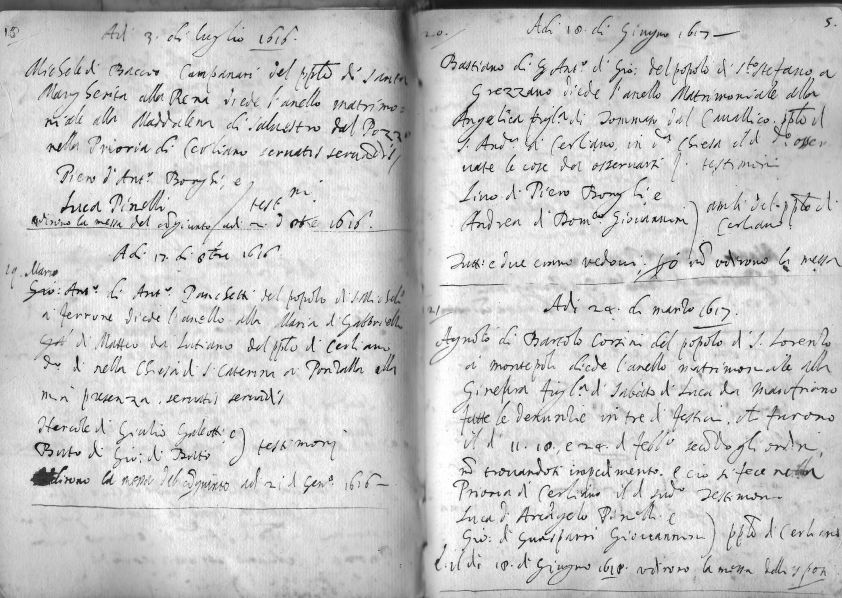 18
Adi 3. di luglio 1616.
Michele di Baccio Campanari del pplo di Santa
Margherita alla Rena diede l'anello matrimo=
niale alla Maddalena di Salvestro dal Pozzo
nella Prioria di Cerliano servatis servandis
Piero d'Anto. Borghi, e
Luca Pinelli
testni.
udirono la messa del congiunto adi 2. d 1616.
Adi 12. di 8bre 1616
19. Mario
Gio: Anto. di Anto. Panchetti del popolo di
a ferrone diede l'anello alla Maria di Gabbriello
di Matteo da Lutiano del pplo di Cerliano
do. di nella Chiesa di S. Caterina a alla
mia presenza, servatis servandis
Hercole di Giulio Galotti e
Betto di Gio: di Betto
testimonj
udirono la messa del congiunto adi 2i di Geno. 1616 —
20.
5.
Adi 18. di Giugno 1617 —
Bastiano di Anto. di Gio: del popolo di Sto Stefano a
Grezzano diede l'anello Matrimoniale alla
Angelica figla. di Tommaso dal Cavallico pplo d
S. Anda. di Cerliano, in da. Chiesa il d do. osser
vate le cose da osservarsi testimoni
Lino di Piero Borghi, e
Andrea di Domco. Giovannini
ambi del pplo di
Cerliano
Tutti e due erano vedovi, udirono la messa
21
Adi 24. di marzo 1617.
Agnolo di Bartolo Corsini del popolo di S. Lorenzo
a montepoli diede l'anello matrimoniale alla
Ginevra figla. di Sabato di Luca da
fatte le denunzie in tre di festivi, che furono
il di 11. 18, e 24. d febbo. secondo gli ordini,
non trovandosi impedimento. e cio si fece nella
Prioria di Cerliano il d sudo. Testimoni
Luca d' Arcangelo Pinelli e
Gio: di Guasparri Giovannini
pplo di Cerliano
E il di 18. di Giugno 1618. udirono la messa delli sposi